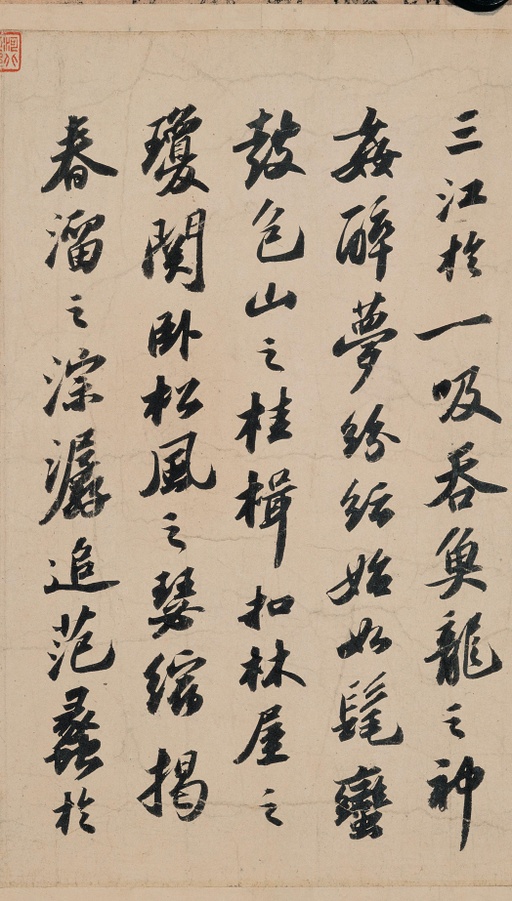 三江於一吸吞魚龍之神
姦醉夢紛紜始如髦蠻
鼓包山之桂楫扣林屋之
瓊関卧松風之瑟縮揭
春溜之淙潺追范蠡於